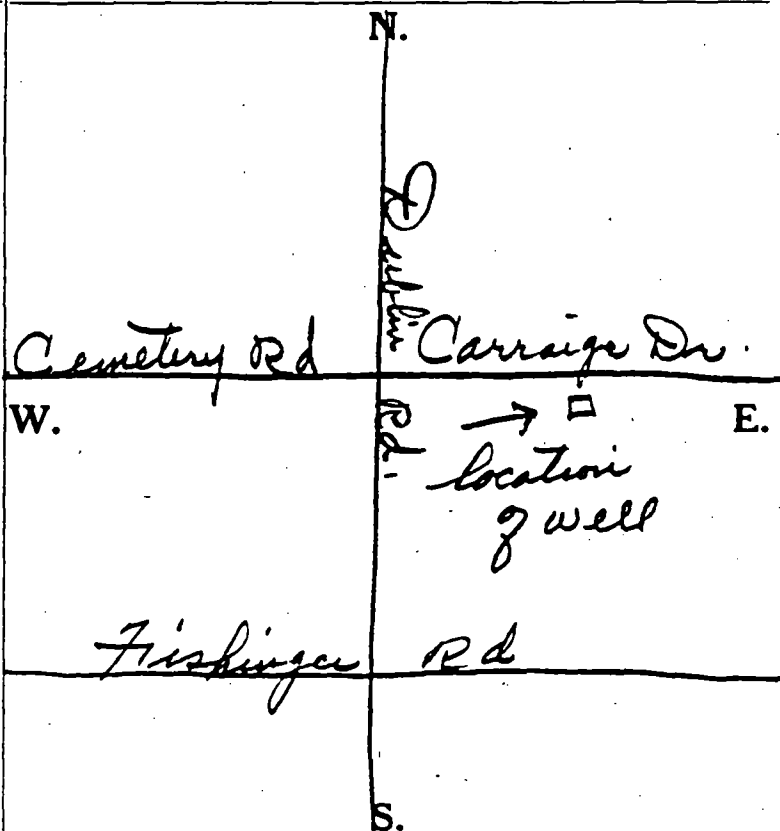 N.
Dublin Rd.
Cemetery Rd
Carraige Dr.
W.
E.
location
of well
Fishinger Rd
S.